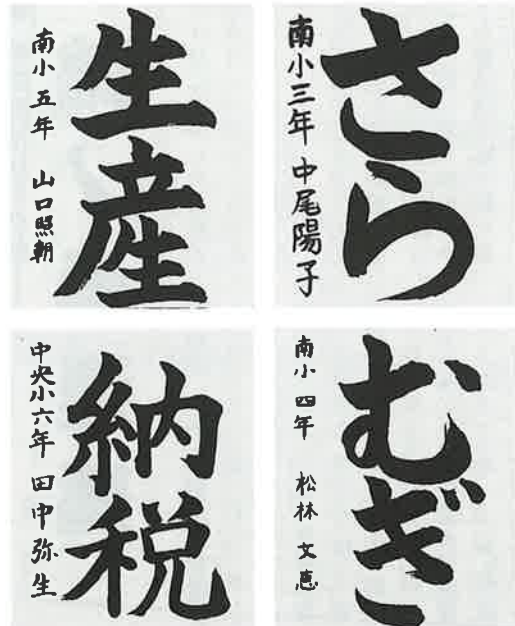 さら
南小三年 中尾陽子
生産
南小五年 山口照朝
むぎ
南小四年 松林文恵
納税
中央小六年 田中弥生